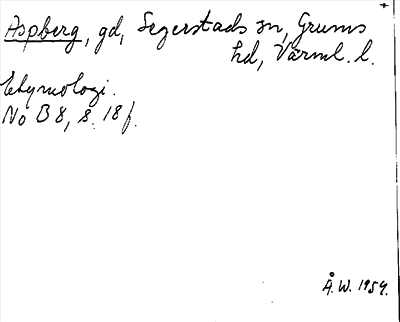 Aspberg, gd, Segerstads sn, Grums
hd, Värml. l.
Etymologi.
No B 8, s. 18 f.
Å. W. 1959.